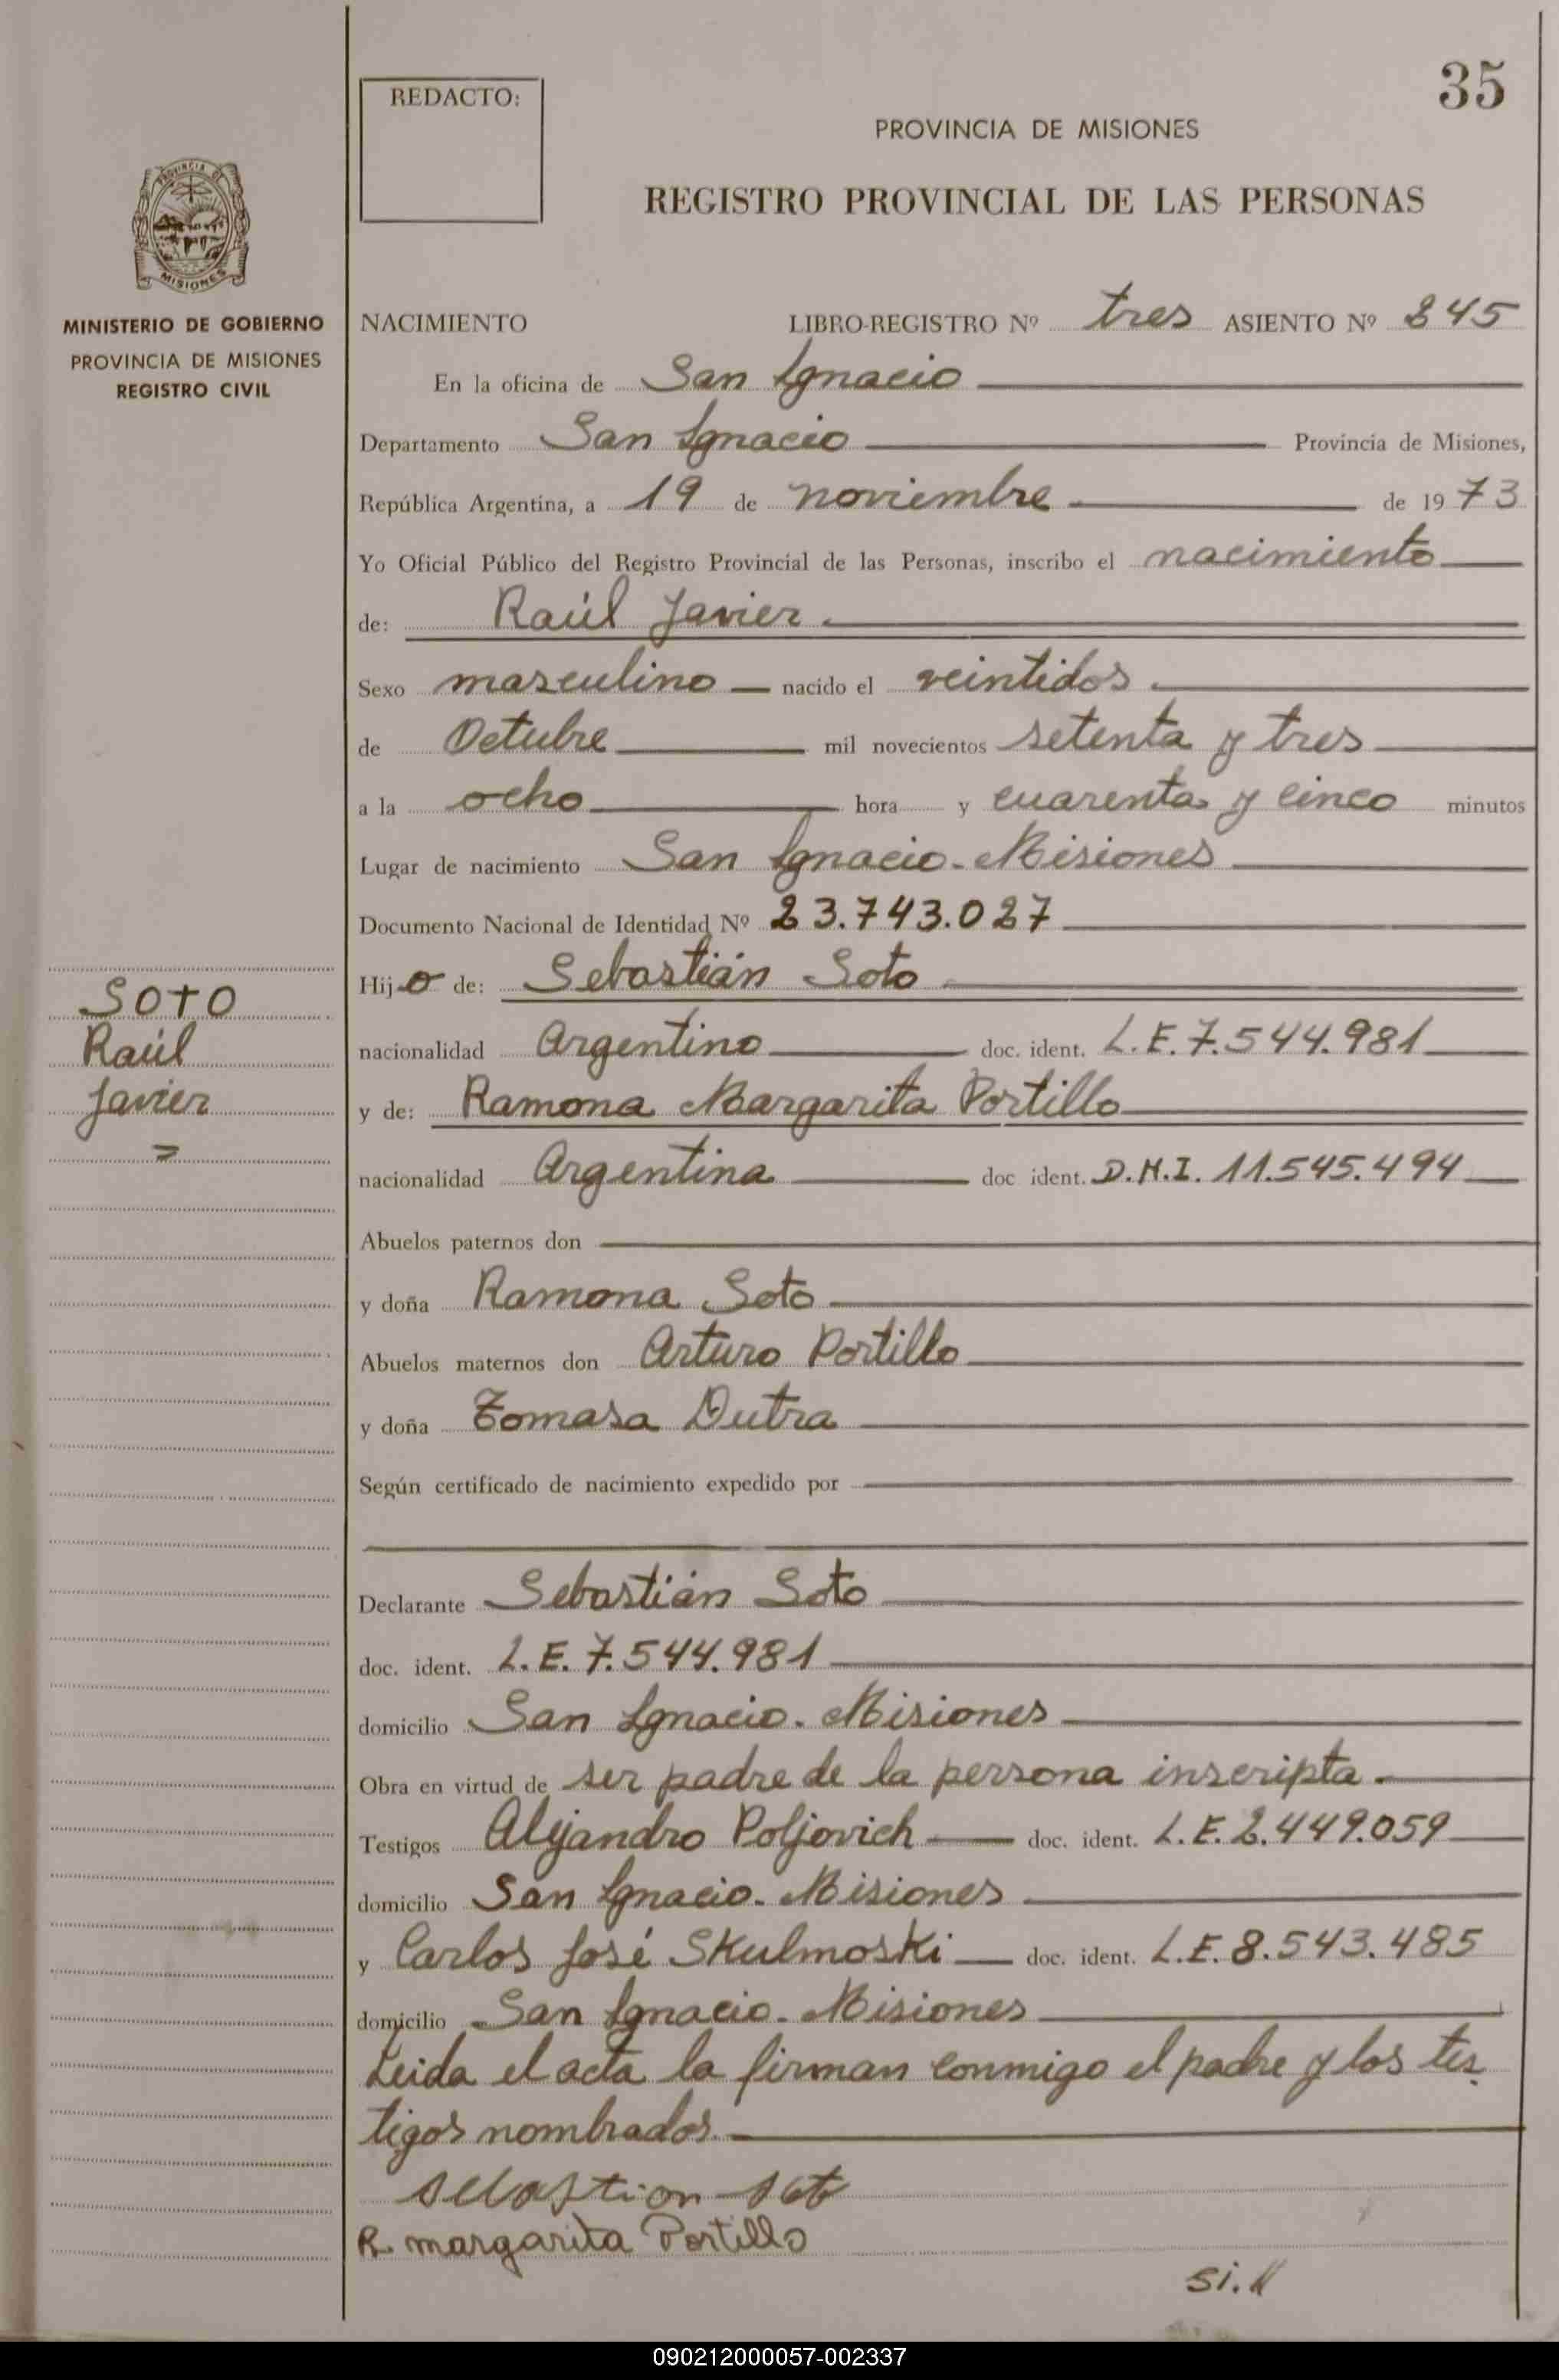 35
REDACTO:
PROVINCIA DE MISIONES
REGISTRO PROVINCIAL DE LAS PERSONAS
PROVINCIA DE
MISIONES
MINISTERIO DE GOBIERNO
PROVINCIA DE MISIONES
REGISTRO CIVIL
NACIMIENTO LIBRO-REGISTRO Nº tres ASIENTO Nº 845
En la oficina de San Ignacio
Departamento San Ignacio Provincia de Misiones,
República Argentina, a 19 de noviembre de 1973
Yo Oficial Público del Registro Provincial de las Personas, inscribo el nacimiento
de: Raúl Javier.
Sexo masculino nacido el veintidos
de Octubre mil novecientos setenta y tres
a la ocho hora y cuarenta y cinco minutos
Lugar de nacimiento San Ignacio - Misiones
Documento Nacional de Identidad Nº 23.743.027
Hijo de: Sebastián Soto
nacionalidad Argentino doc. ident. L.E. 7.544.981
y de: Ramona Margarita Portillo
nacionalidad Argentina doc ident. D.N.I. 11.545.494
Abuelos paternos don
y doña Ramona Soto
Abuelos maternos don Arturo Portillo
y doña Tomasa Dutra
Según certificado de nacimiento expedido por
Declarante Sebastián Soto
doc. ident. L.E. 7.544.981
domicilio San Ignacio - Misiones
Obra en virtud de ser padre de la persona inscripta.
Testigos Alejandro Poljovich doc. ident. L.E. 2.449.059
domicilio San Ignacio - Misiones
y Carlos José Skulmoski doc. ident. L.E. 8.543.485
domicilio San Ignacio - Misiones
Leida el acta la firman conmigo el padre y los tes-
tigos nombrados.
Sebastian Soto
R. margarita Portillo
si.
SOTO
Raúl
Javier
=
090212000057-002337